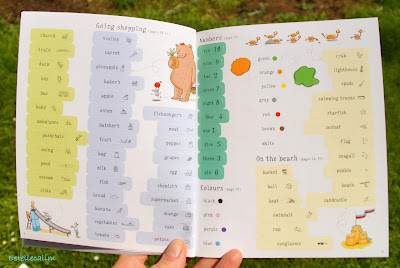 Going shopping
church
train
duck
boy
bus
baby
ambulance
pushchair
swing
pond
seesaw
slide
trolley
carrot
pineapple
baker's
apple
onion
butcher's
fruit
bag
milk
fish
bread
banana
vegetables
tomato
fishmonger's
meat
pepper
grapes
egg
chemist's
supermarket
orange
rake
potato
Numbers
ten 10
nine 9
two 2
seven 7
eight 8
four 4
one 1
five 5
three 3
six 6
Colours
black
pink
purple
blue
green
orange
yellow
grey
red
brown
white
On the beach
basket
ball
boat
swimsuit
cap
sunglasses
crab
lighthouse
spade
swimming trunks
starfish
sunhat
flag
seagull
pebble
beach
sandcastle
Estellecalim